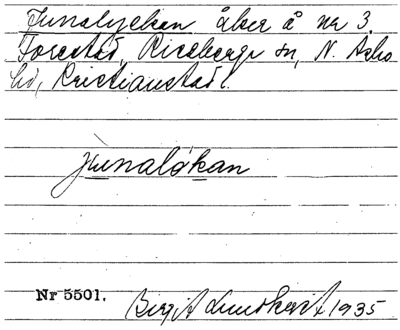 Junalyckan åker å nr 3.
Forestad, Riseberga sn, N. Åsbo
hd, Kristianstad l.
junalǫkan
Nr 5501.
Birgit Lundkvist 1935